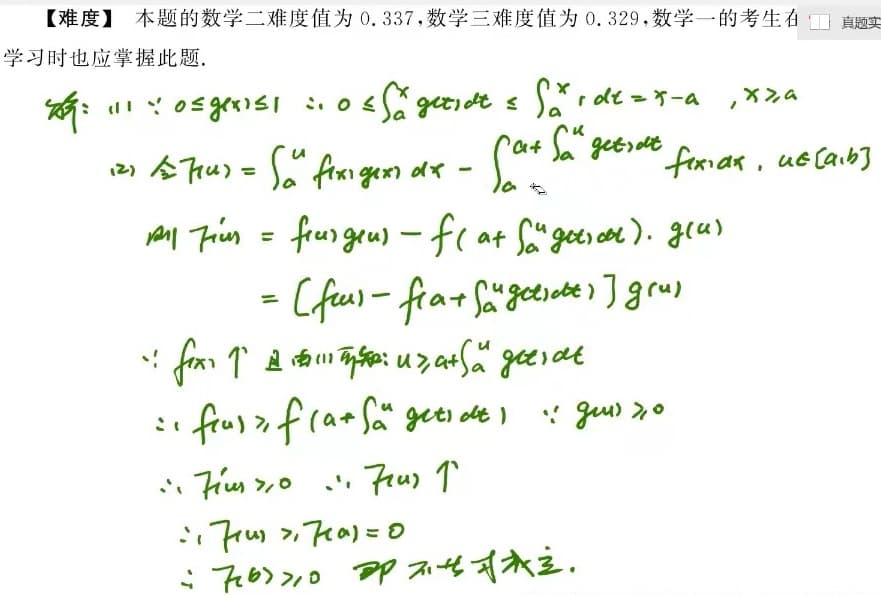 【难度】 本题的数学二难度值为 0.337,数学三难度值为 0.329,数学一的考生在 真题实
学习时也应掌握此题.
解: (1) ∵ 0≤g(x)≤1 ∴ 0 ≤ ∫_a^x g(t)dt ≤ ∫_a^x 1 dt = x-a , x≥a
(2) 令 F(u) = ∫_a^u f(x)g(x) dx - ∫_a^{a+∫_a^u g(t)dt} f(x)dx , u∈[a,b]
则 F'(u) = f(u)g(u) - f(a+∫_a^u g(t)dt)·g(u)
= [f(u) - f(a+∫_a^u g(t)dt)] g(u)
∵ f(x)↑ 且由(1)可知: u≥a+∫_a^u g(t)dt
∴ f(u) ≥ f(a+∫_a^u g(t)dt) ∵ g(u)≥0
∴ F'(u)≥0 ∴ F(u)↑
∴ F(u) ≥ F(a) = 0
∴ F(b)≥0 即不等式成立.